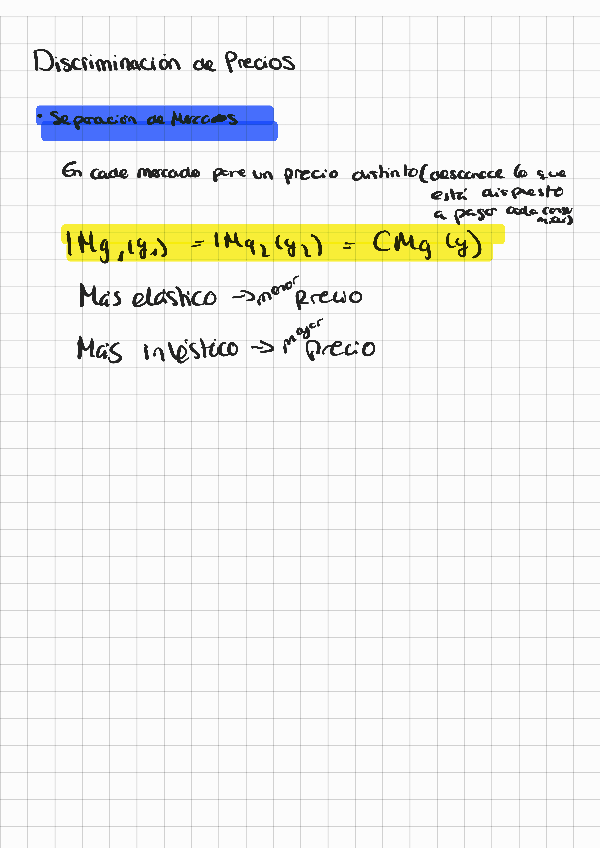 Discriminación de Precios
• Separación de Mercados
En cada mercado pone un precio distinto (desconoce lo que
está dispuesto
a pagar cada
IMg₁(y₁) = IMg₂(y₂) = CMg (y)
Más elástico → menor precio
Más inléstico → mayor precio